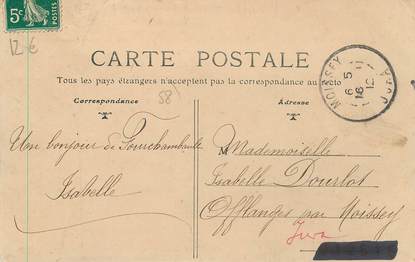 5c
POSTES
12 €
CARTE POSTALE
Tous les pays étrangers n'acceptent pas la correspondance au
Correspondance
58
Adresse
MOISSEY
JURA
6 5
12
Un bonjour de Fourchambault
Isabelle
Mademoiselle
Isabelle Dourlot
Offlanges par Moissey
Jura